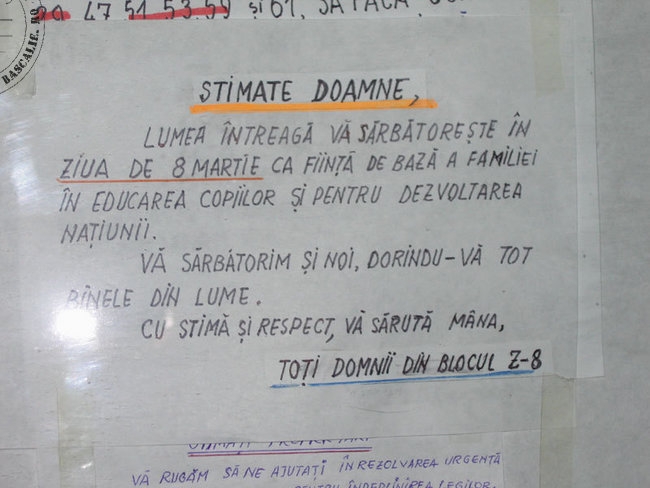 47 51 53 59 și 61, SĂ FACĂ
BASCALIE.RO
STIMATE DOAMNE,
LUMEA ÎNTREAGĂ VĂ SĂRBĂTOREȘTE ÎN
ZIUA DE 8 MARTIE CA FIINȚĂ DE BAZĂ A FAMILIEI
ÎN EDUCAREA COPIILOR ȘI PENTRU DEZVOLTAREA
NAȚIUNII.
VĂ SĂRBĂTORIM ȘI NOI, DORINDU-VĂ TOT
BINELE DIN LUME.
CU STIMĂ ȘI RESPECT, VĂ SĂRUTĂ MÂNA,
TOȚI DOMNII DIN BLOCUL Z-8
VĂ RUGĂM SĂ NE AJUTAȚI ÎN REZOLVAREA URGENTĂ
PENTRU ÎNDEPLINIREA LEGILOR.